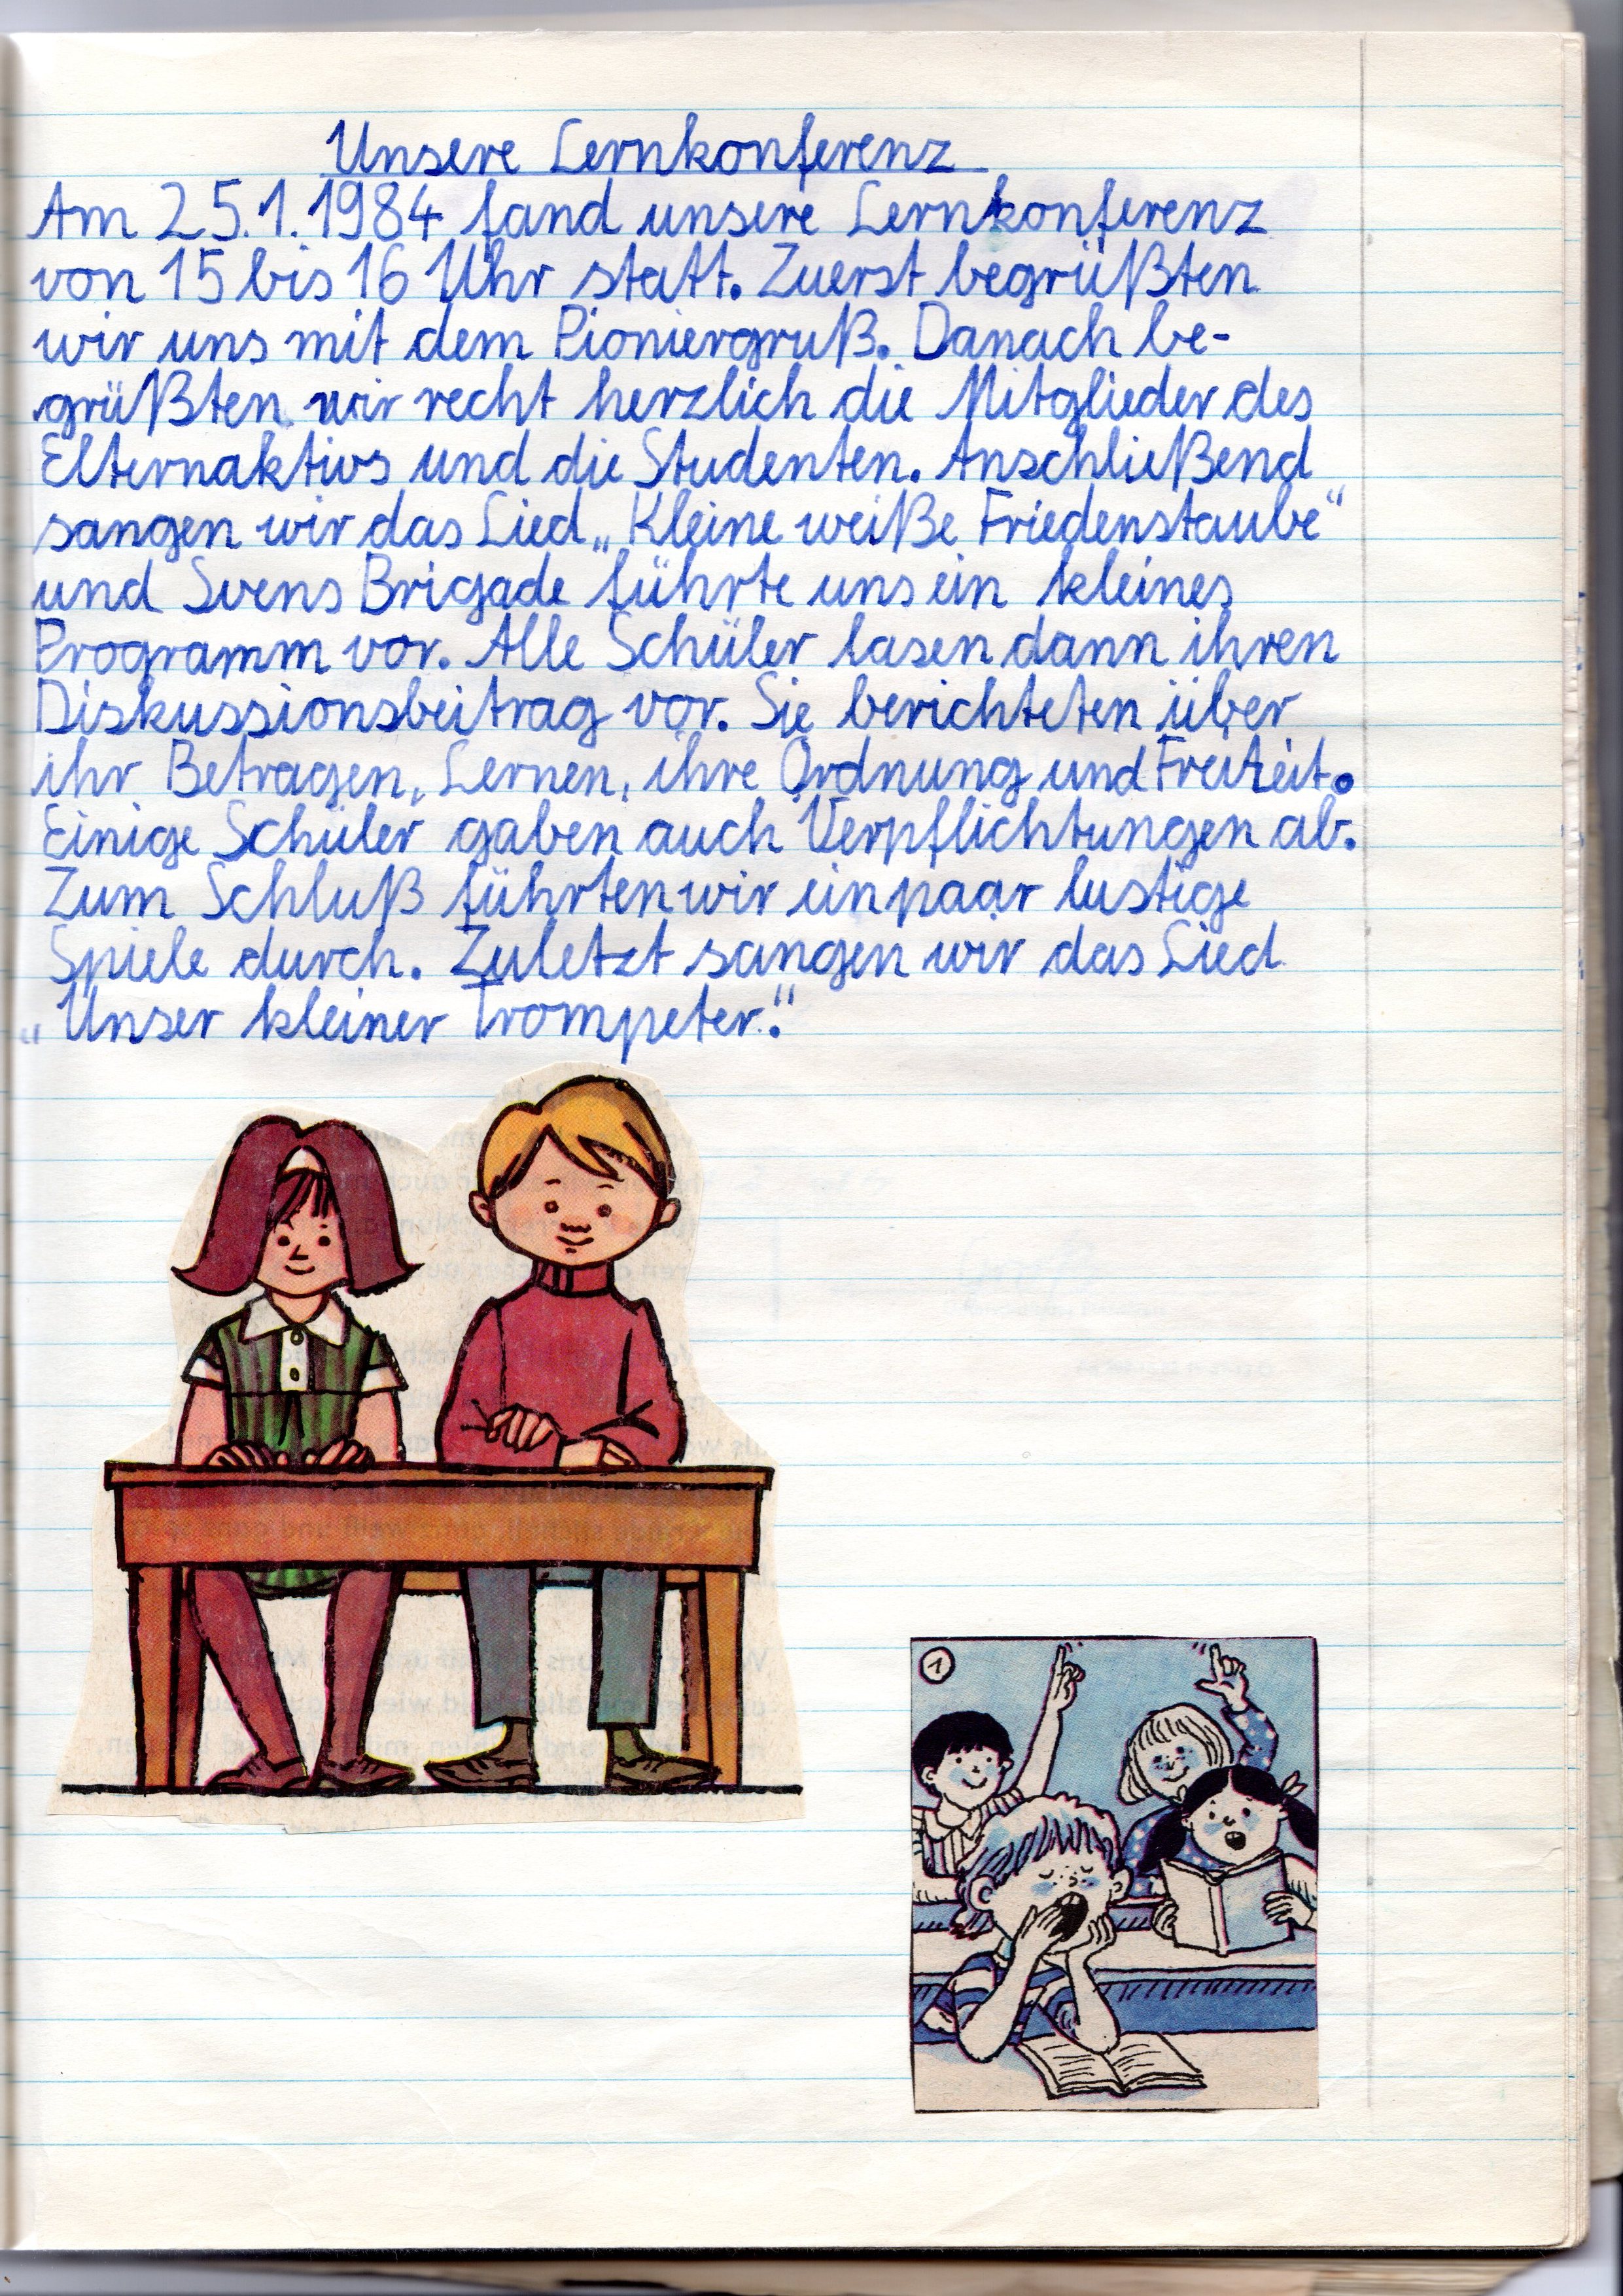 Unsere Lernkonferenz
Am 25.1.1984 fand unsere Lernkonferenz
von 15 bis 16 Uhr statt. Zuerst begrüßten
wir uns mit dem Pioniergruß. Danach be-
grüßten wir recht herzlich die Mitglieder des
Elternaktivs und die Studenten. Anschließend
sangen wir das Lied „Kleine weiße Friedenstaube“
und Svens Brigade führte uns ein kleines
Programm vor. Alle Schüler lasen dann ihren
Diskussionsbeitrag vor. Sie berichteten über
ihr Betragen, Lernen, ihre Ordnung und Freizeit.
Einige Schüler gaben auch Verpflichtungen ab.
Zum Schluß führten wir ein paar lustige
Spiele durch. Zuletzt sangen wir das Lied
„Unser kleiner Trompeter.“
1